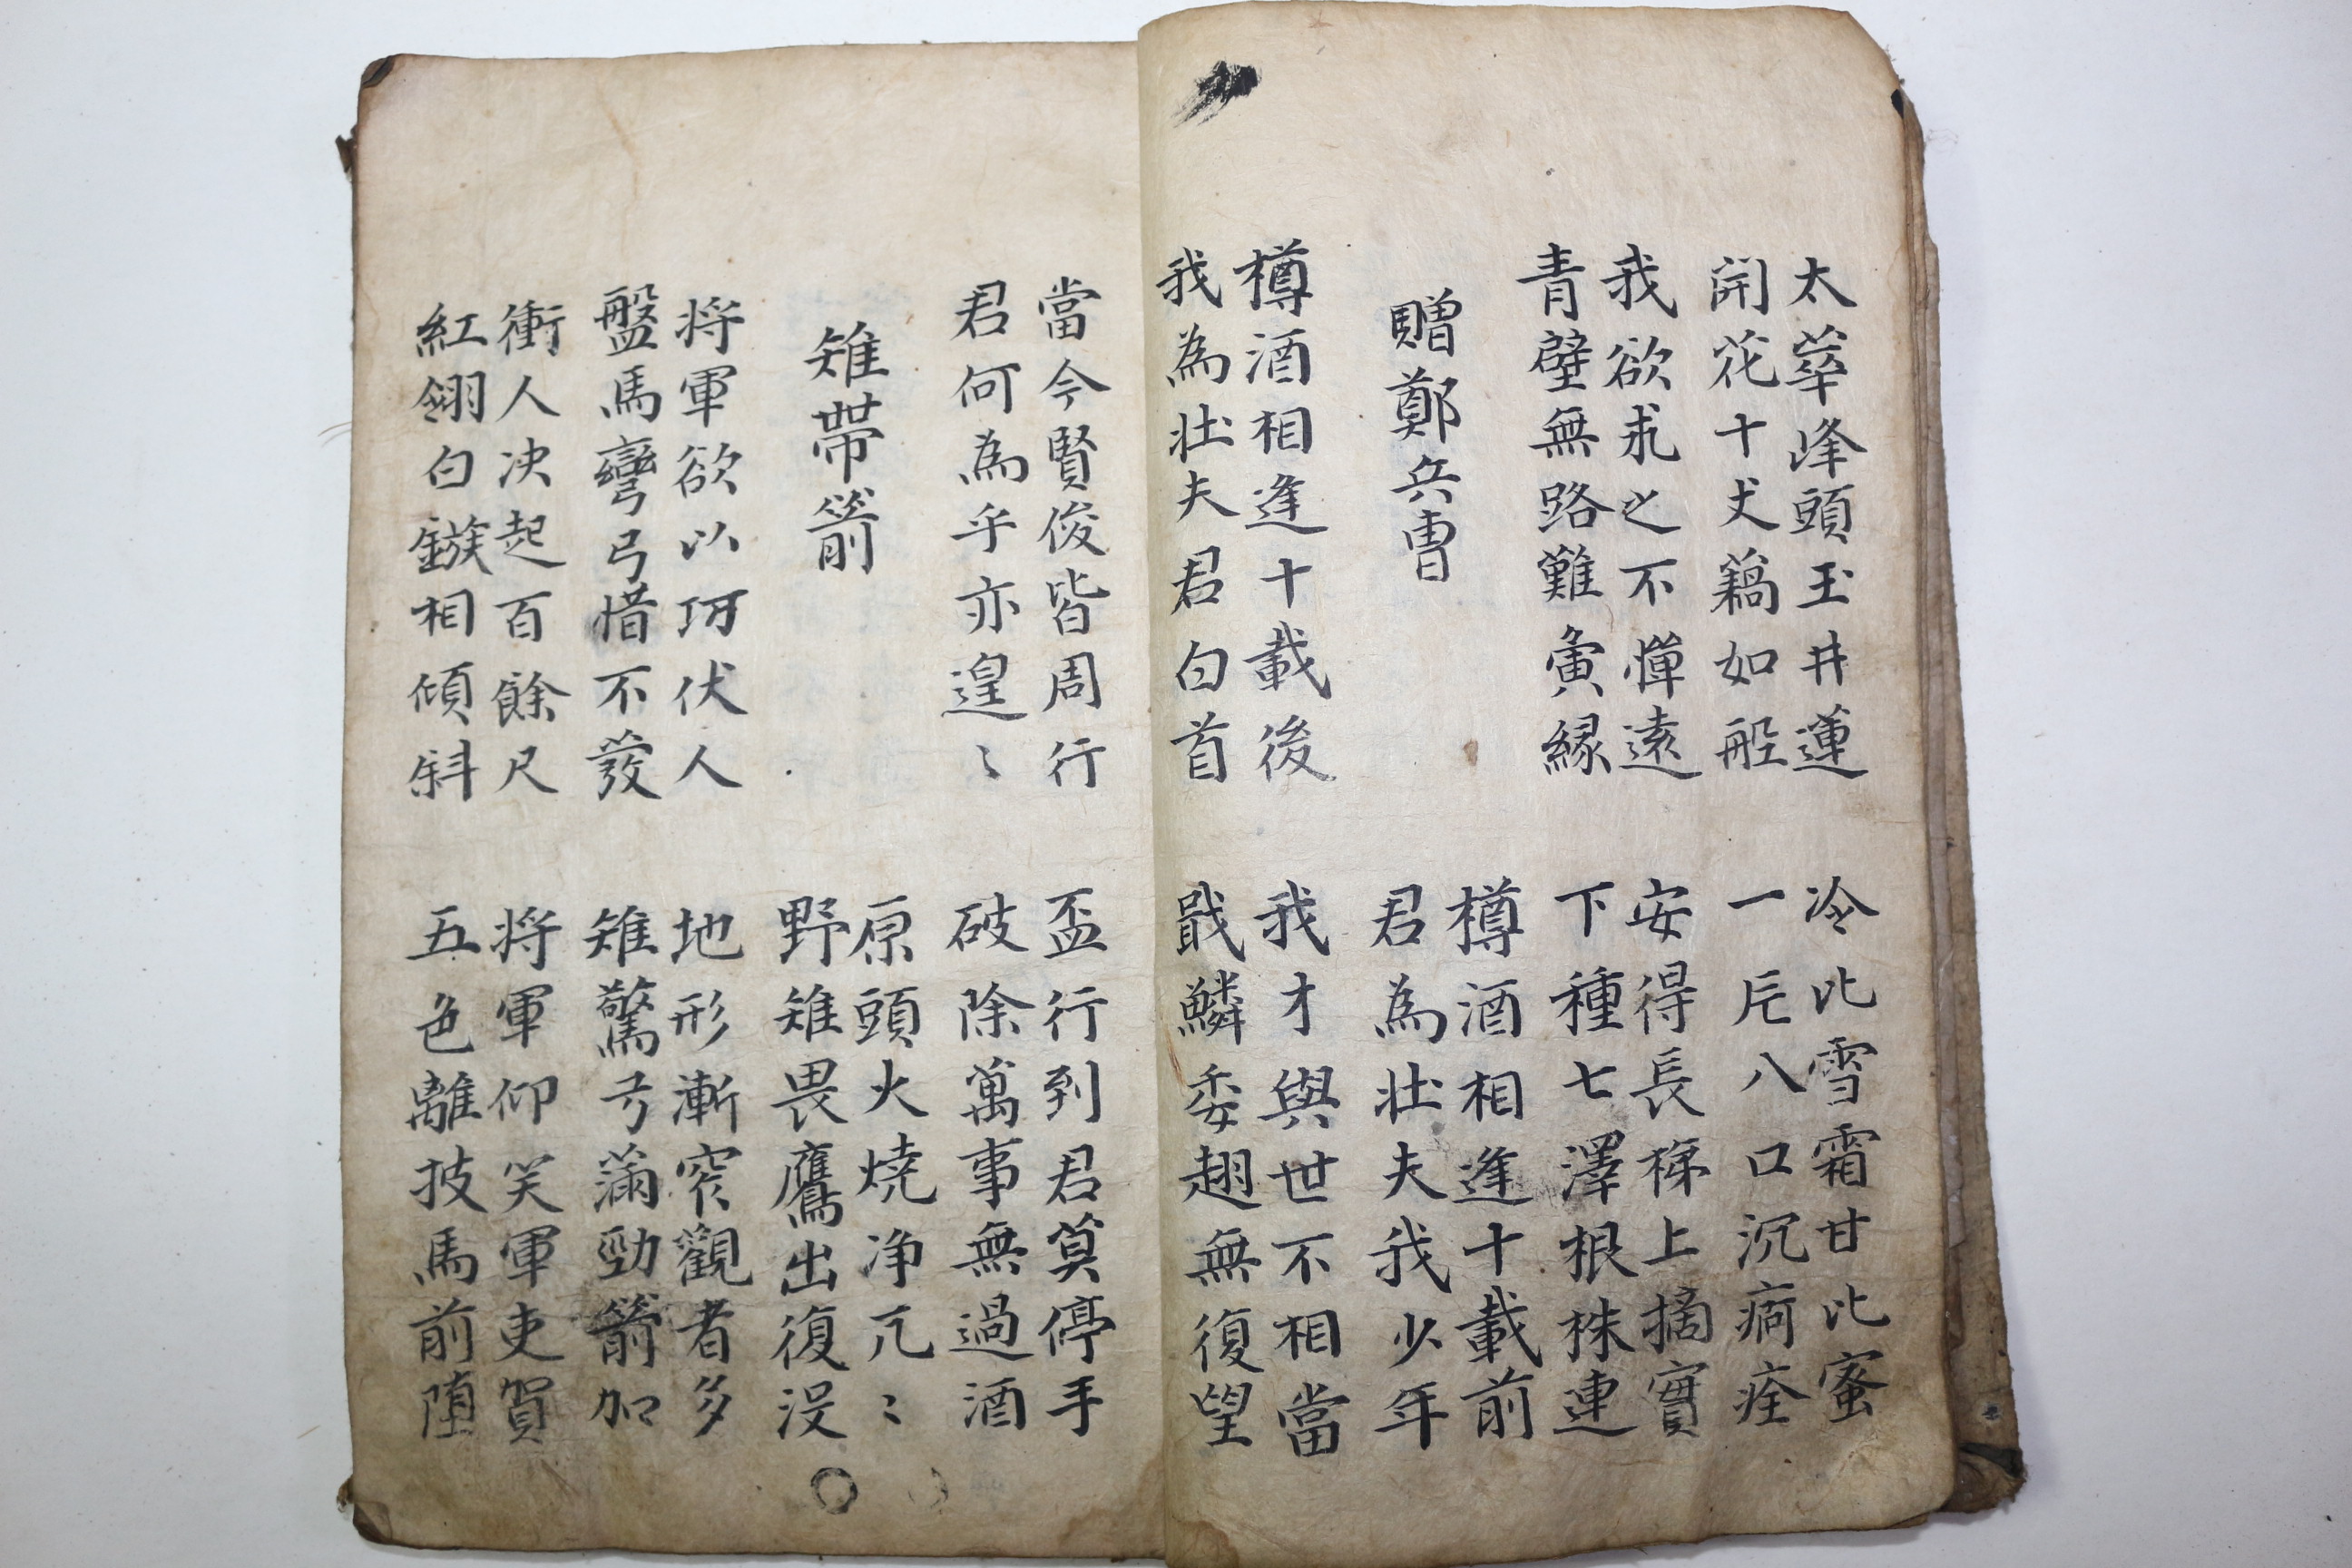 太華峰頭玉井蓮
開花十丈藕如船
冷比雪霜甘比蜜
一片入口沉痾痊
我欲求之不憚遠
青壁無路難夤緣
安得長梯上摘實
下種七澤根株連
贈鄭兵曹
樽酒相逢十載前
君為壯夫我少年
樽酒相逢十載後
我為壯夫君白首
我才與世不相當
戢鱗委翅無復望
當今賢俊皆周行
君何為乎亦遑〻
盃行到君莫停手
破除萬事無過酒
雉帶箭
原頭火燒净兀〻
野雉畏鷹出復沒
将軍欲以巧伏人
盤馬彎弓惜不發
地形漸窄觀者多
雉驚弓滿勁箭加
衝人决起百餘尺
紅翎白鏃相傾斜
将軍仰笑軍吏賀
五色離披馬前墮